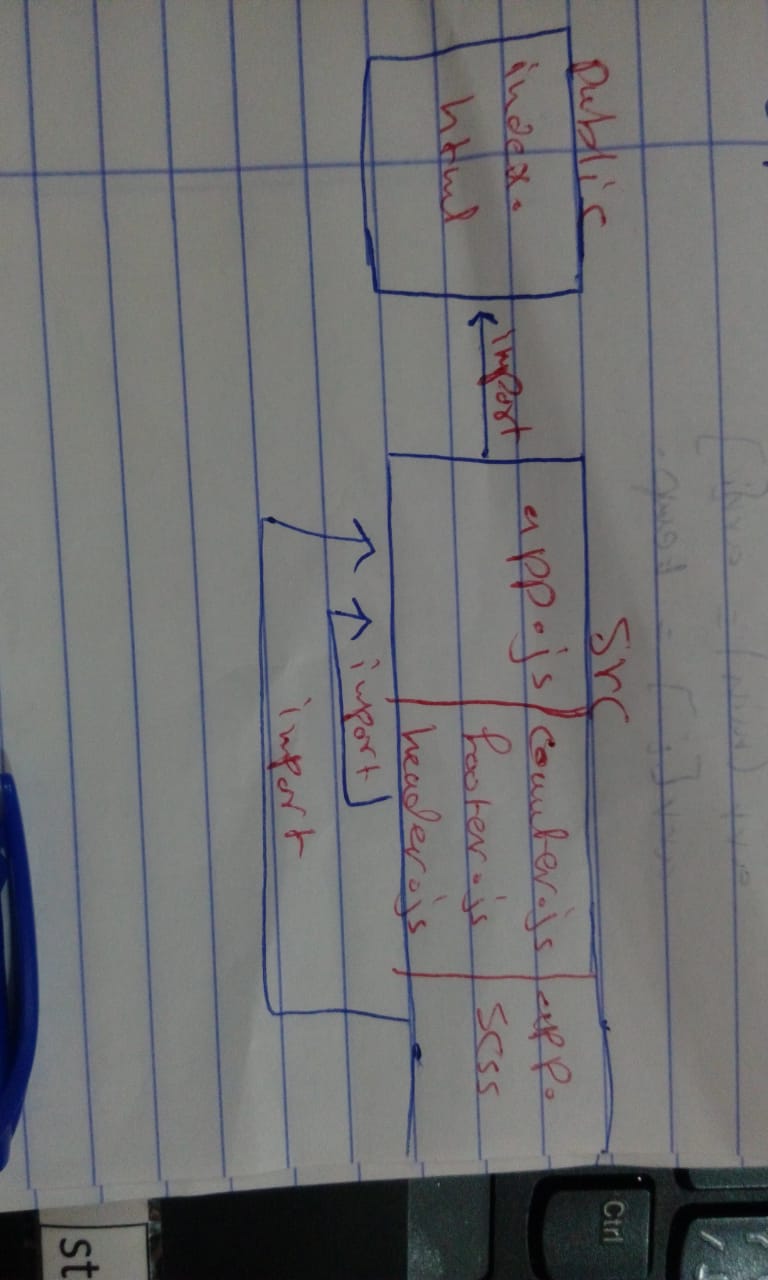 public
index.
html
import
src
app.js
counter.js
footer.js
header.js
app.
scss
import
import
Ctrl
st